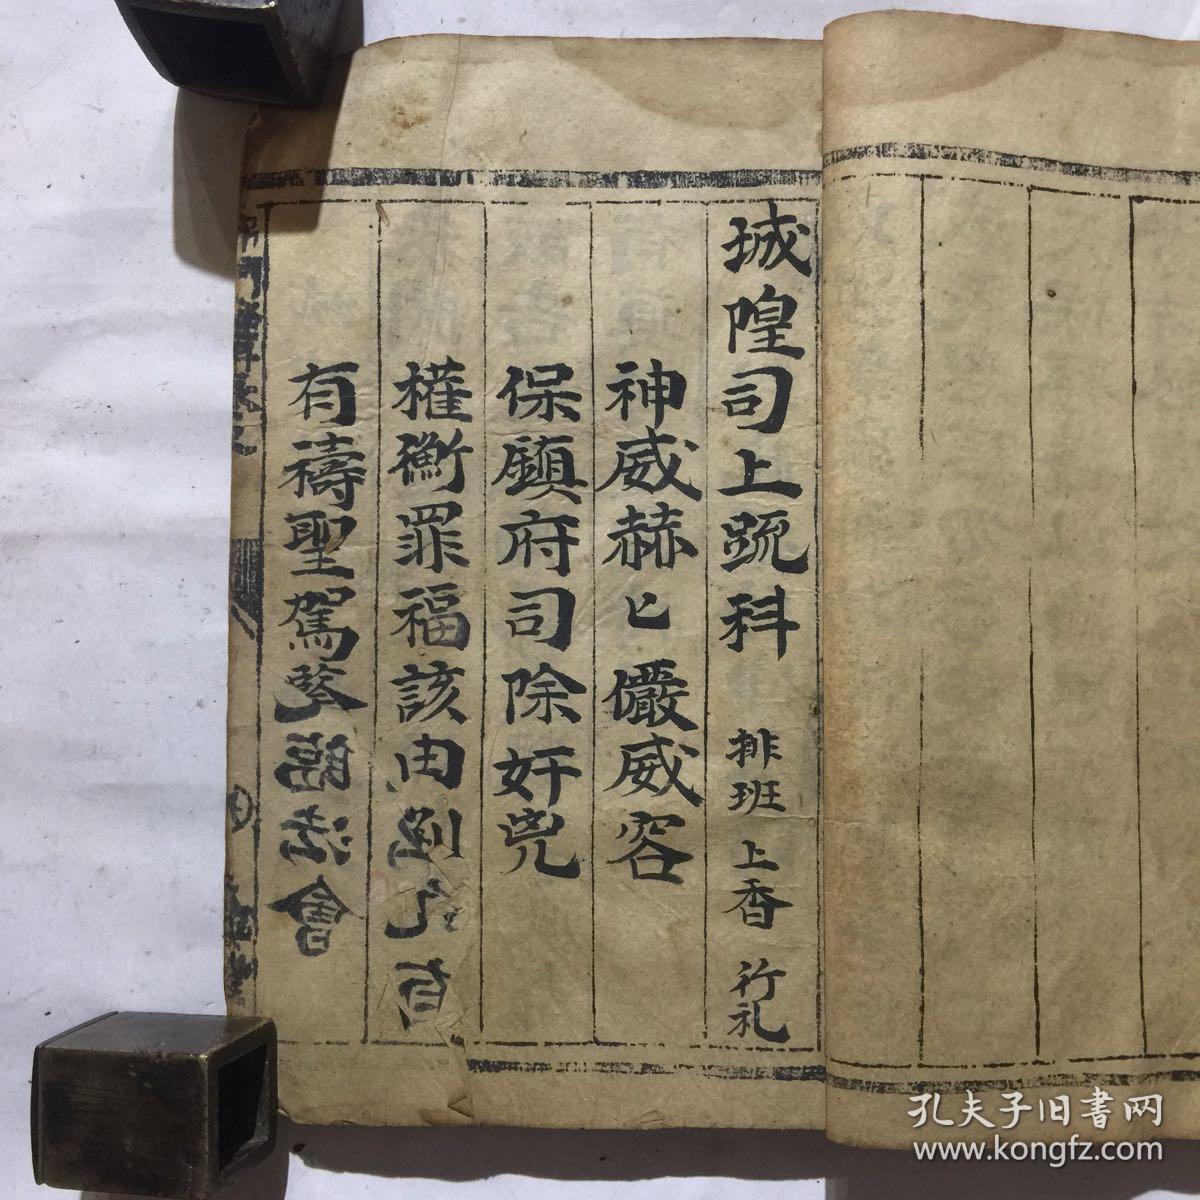 城隍司上疏科 排班 上香 行礼
神威赫匕儼威容
保鎮府司除奸兇
權衡罪福該由
有禱聖駕降臨法會
孔夫子旧書网
www.kongfz.com